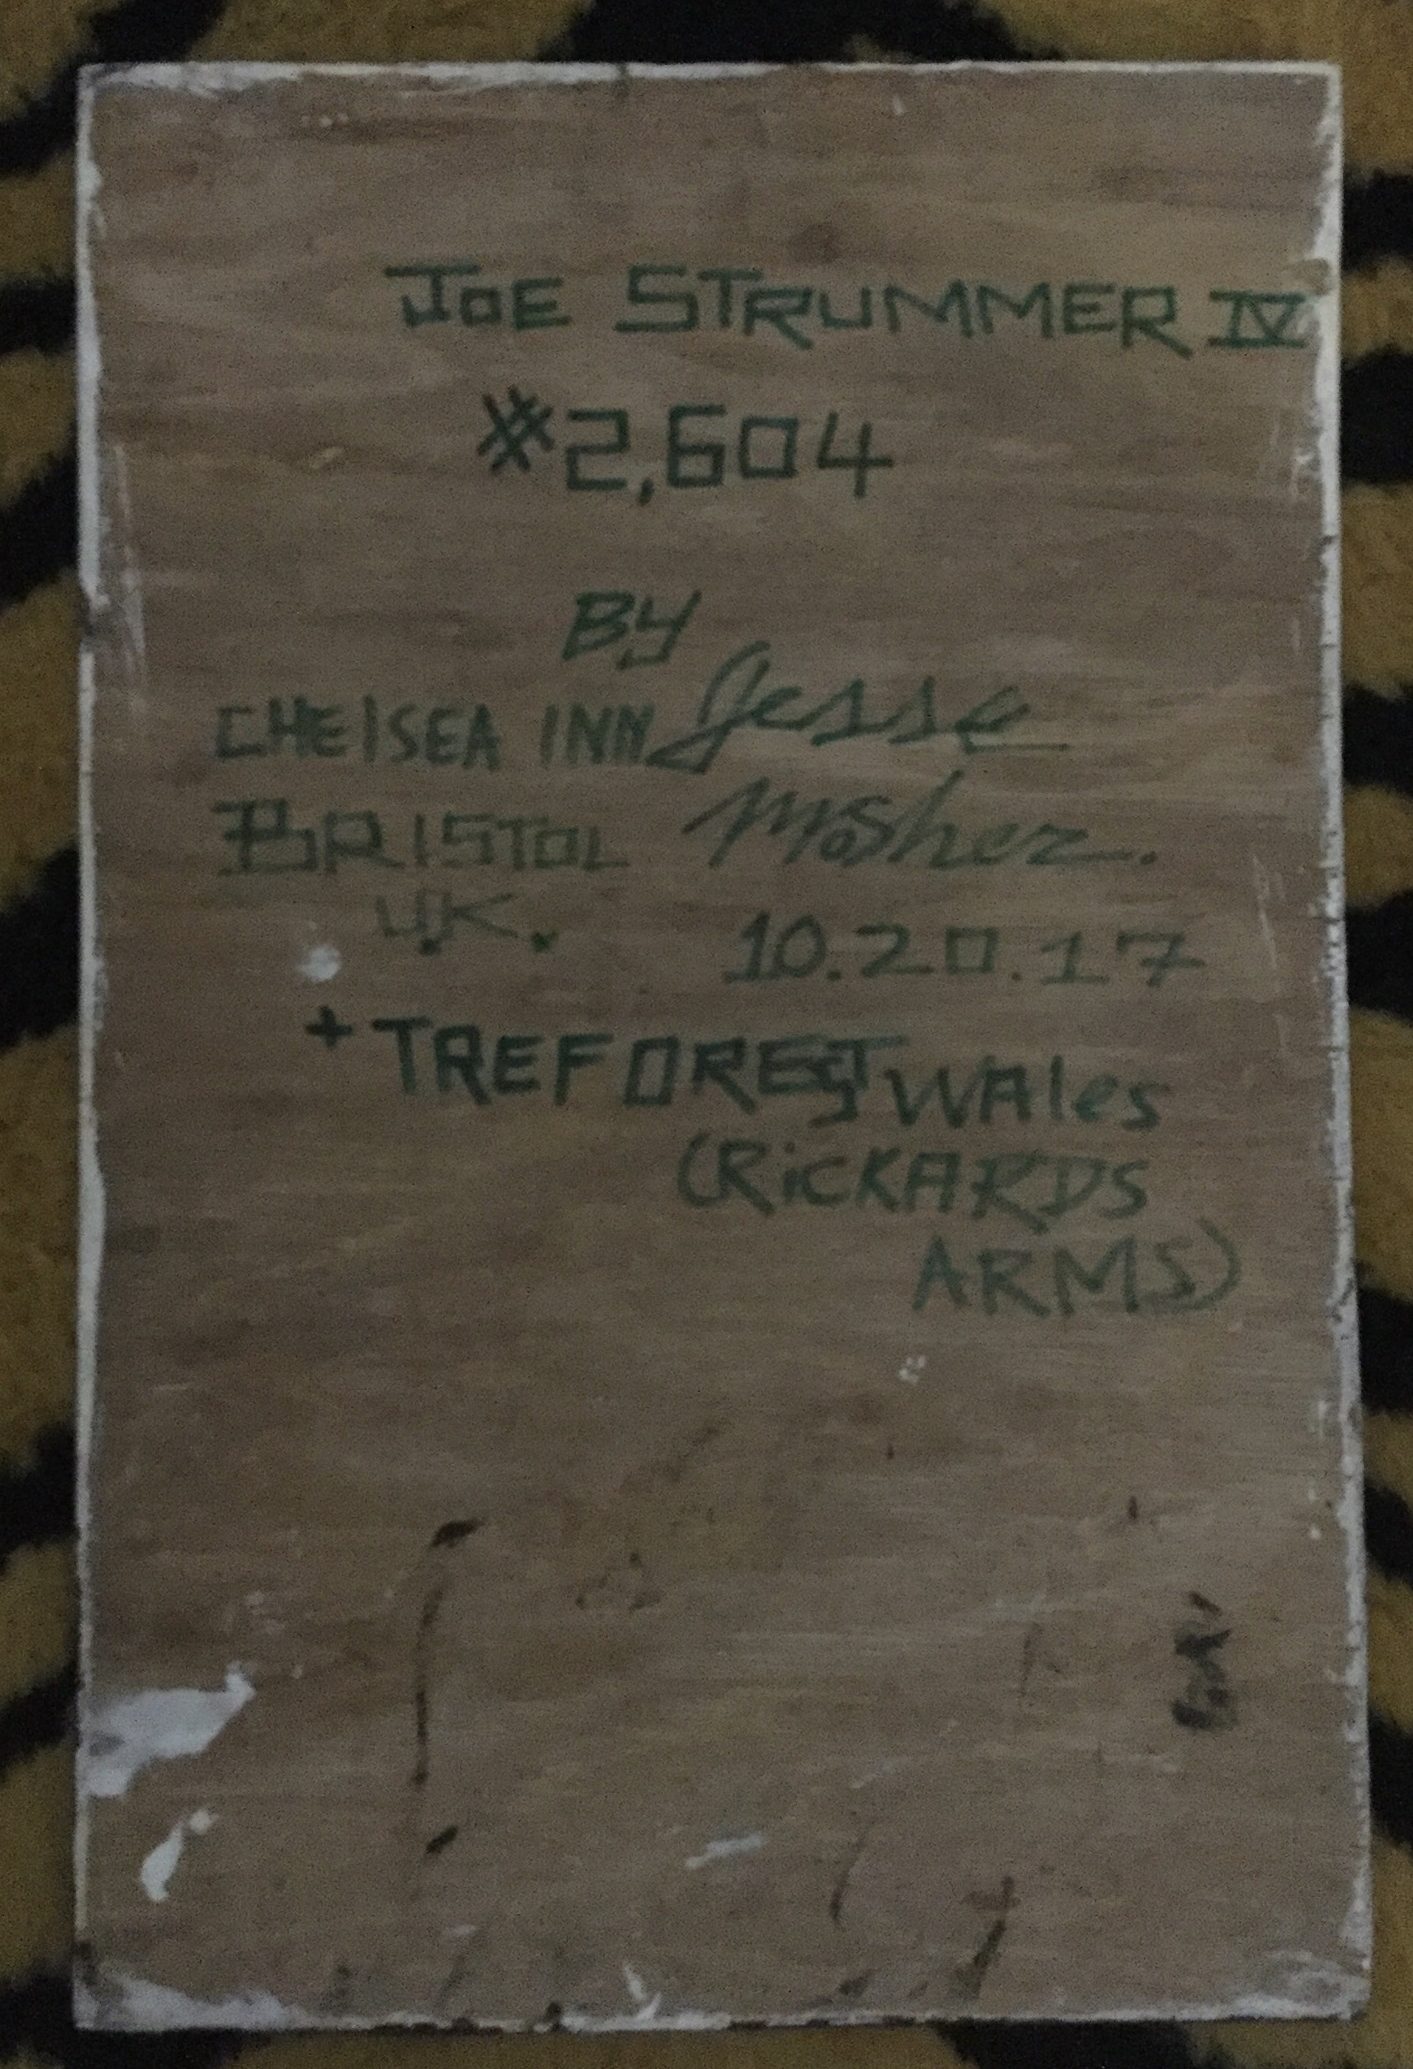 JOE STRUMMER IV
#2,604
BY
CHElSEA INN Jesse
BRISTOL Mosher.
U.K.
10.20.17
+ TREFOREST WAles
(RiCKARDS
ARMS)